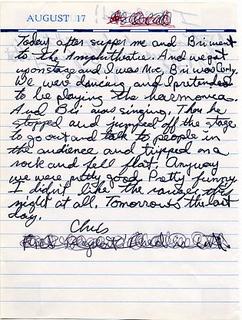 AUGUST 17
Today after supper me and Bri went
to the Amphitheatre. And we got
upon stage and I was Mic, Bri was
We were dancing and I pretended
to be playing the harmonica.
And Bri was singing. Then he
stopped and jumped off the stage
to go out and talk to people in
the audience and tripped on a
rock and fell flat. Anyway
we were pretty good. Pretty funny.
I didn't like the this
night at all. Tomorrow's the last
day.
Chris